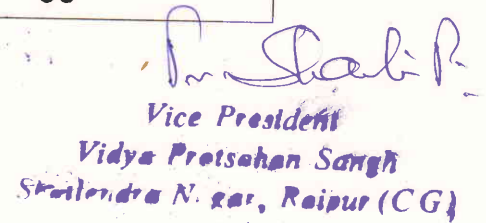 Vice President
Vidya Protsahan Sangh
Shailendra N gar, Raipur (C G)